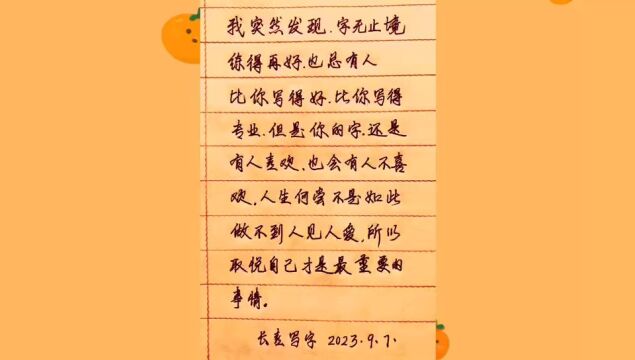 我突然发现.字无止境
练得再好.也总有人
比你写得好.比你写得
专业.但是你的字.还是
有人喜欢,也会有人不喜
欢,人生何尝不是如此
做不到人见人爱,所以
取悦自己才是最重要的
事情。
长青写字 2023.9.7.